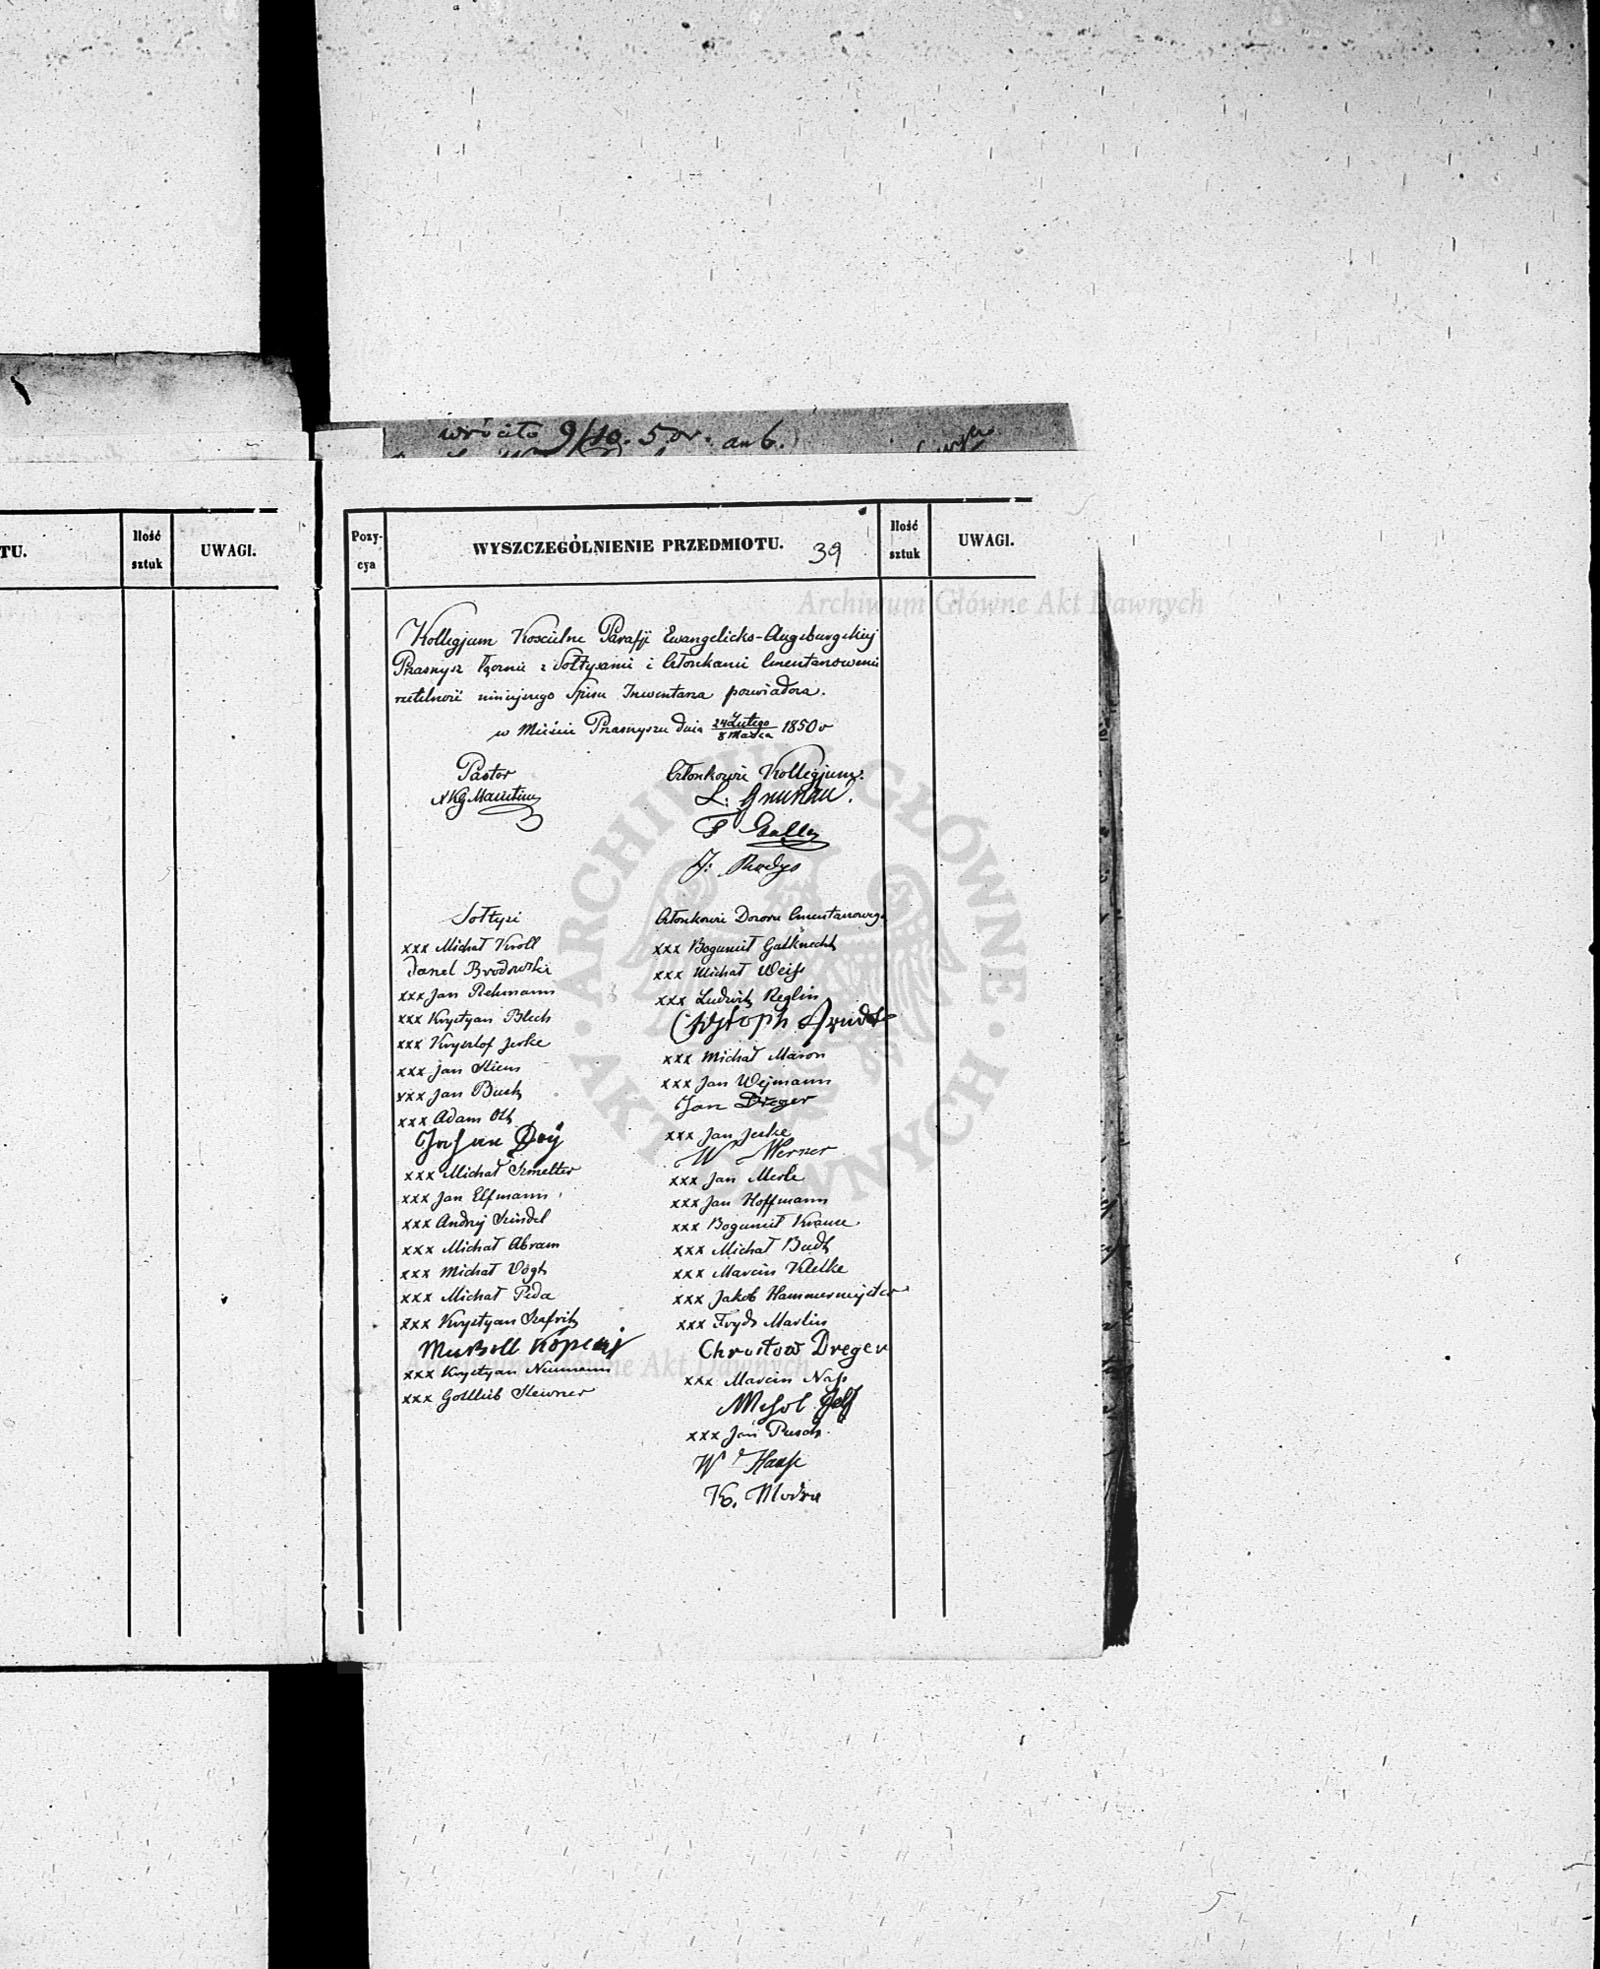 wróciło 9/10. 50r. an 6.
TU.
Ilość
sztuk
UWAGI.
Pozy-
cya
WYSZCZEGÓLNIENIE PRZEDMIOTU.
39
Ilość
sztuk
UWAGI.
Archiwum Główne Akt Dawnych
Kollegjum Kościelne Parafji Ewangelicko-Augsburgskiej
Prasnysz łącznie z Sołtysami i Członkami Cmentarowemi
rzetelność niniejszego Spisu Inwentarza poświadcza.
w Mieście Prasnyszu dnia 24 Lutego / 8 Marca 1850 r
Pastor
Członkowie Kollegjum.
L. Grunau.
J. Radys
Sołtysi
xxx Michał Kroll
Danel Brodowski
xxx Jan Rehmann
xxx Krystyan Blech
xxx Krysztof Jeske
xxx Jan
xxx Jan Busch
xxx Adam Ott
Johan
xxx Michał Szmelter
xxx Jan Elfmann
xxx Andrzej Szindel
xxx Michał Abram
xxx Michał Vogt
xxx Michał Peda
xxx Krystyan
xxx Krystyan Neumann
xxx Gottlieb
Członkowie Dozoru Cmentarowego
xxx Bogumił Gutknecht
xxx Michał Weiss
xxx Ludwik Reglin
xxx Michał Mason
xxx Jan Wejmann
Jan Dreger
xxx Jan Jeske
W Werner
xxx Jan
xxx Jan Hoffmann
xxx Bogumił Krause
xxx Michał Budt
xxx Marcin Kletke
xxx Jakob Hammermejster
xxx Fryd: Marlin
Chrostow Dreger
xxx Marcin Nass
xxx Jan Pusch
W Haase
K. Modra
Archiwum Główne Akt Dawnych
ARCHIWUM GŁÓWNE AKT DAWNYCH